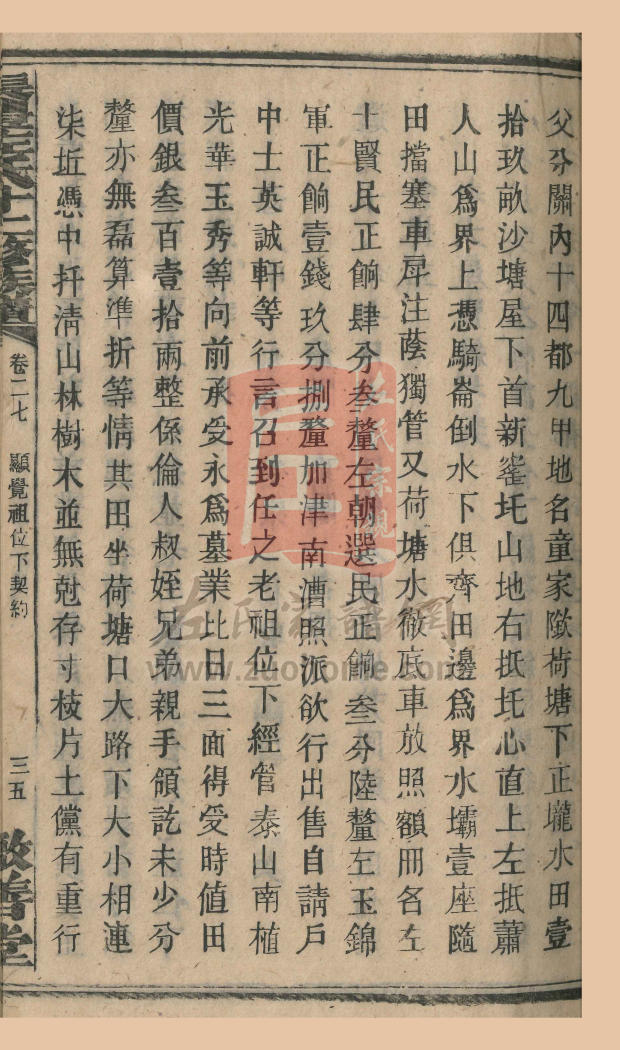 父分關內十四都九甲地名童家陂荷塘下正壠水田壹
拾玖畝沙塘屋下首新窰圫山地右抵圫心直上左抵蕭
人山爲界上憑騎崙倒水下俱齊田邊爲界水壩壹座隨
田擋塞車戽注蔭獨管又荷塘水徹底車放照額冊名左
十賢民正餉肆分叁釐左朝選民正餉叁分陸釐左玉錦
軍正餉壹錢玖分捌釐加津南漕照派欲行出售自請戶
中士英誠軒等行言召到任之老祖位下經管泰山南植
光華玉秀等向前承受永爲墓業比日三面得受時値田
價銀叁百壹拾兩整係倫人叔姪兄弟親手領訖未少分
釐亦無磊算準折等情其田坐荷塘口大路下大小相連
柒坵憑中扦淸山林樹木並無尅存寸枝片土儻有重行
氏十二修族譜
卷二七
顯覺祖位下契約
三五
敦善堂
左氏宗親
左氏家譜網
www.zuojiahome.com